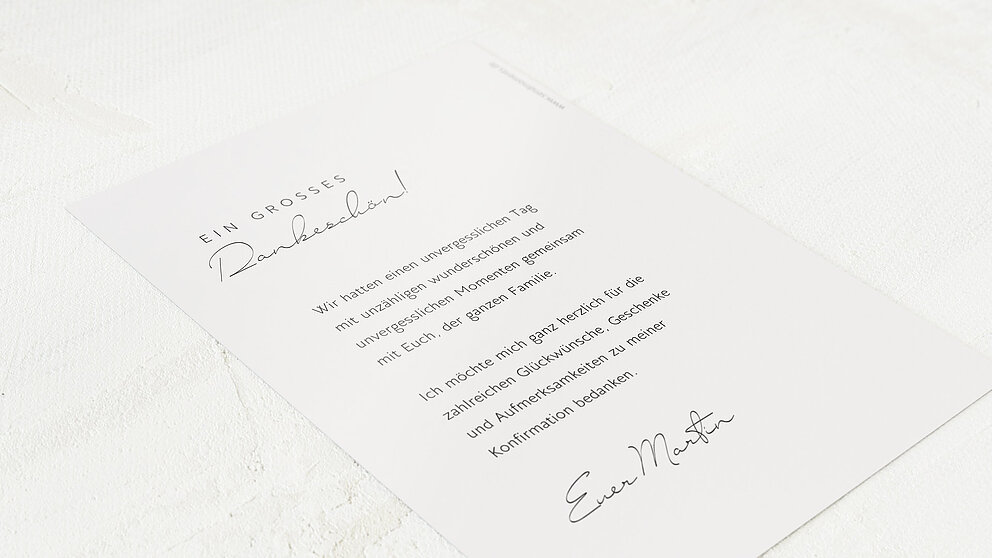 EIN GROSSES
Dankeschön!
Wir hatten einen unvergesslichen Tag
mit unzähligen wunderschönen und
unvergesslichen Momenten gemeinsam
mit Euch, der ganzen Familie.
Ich möchte mich ganz herzlich für die
zahlreichen Glückwünsche, Geschenke
und Aufmerksamkeiten zu meiner
Konfirmation bedanken.
Euer Martin